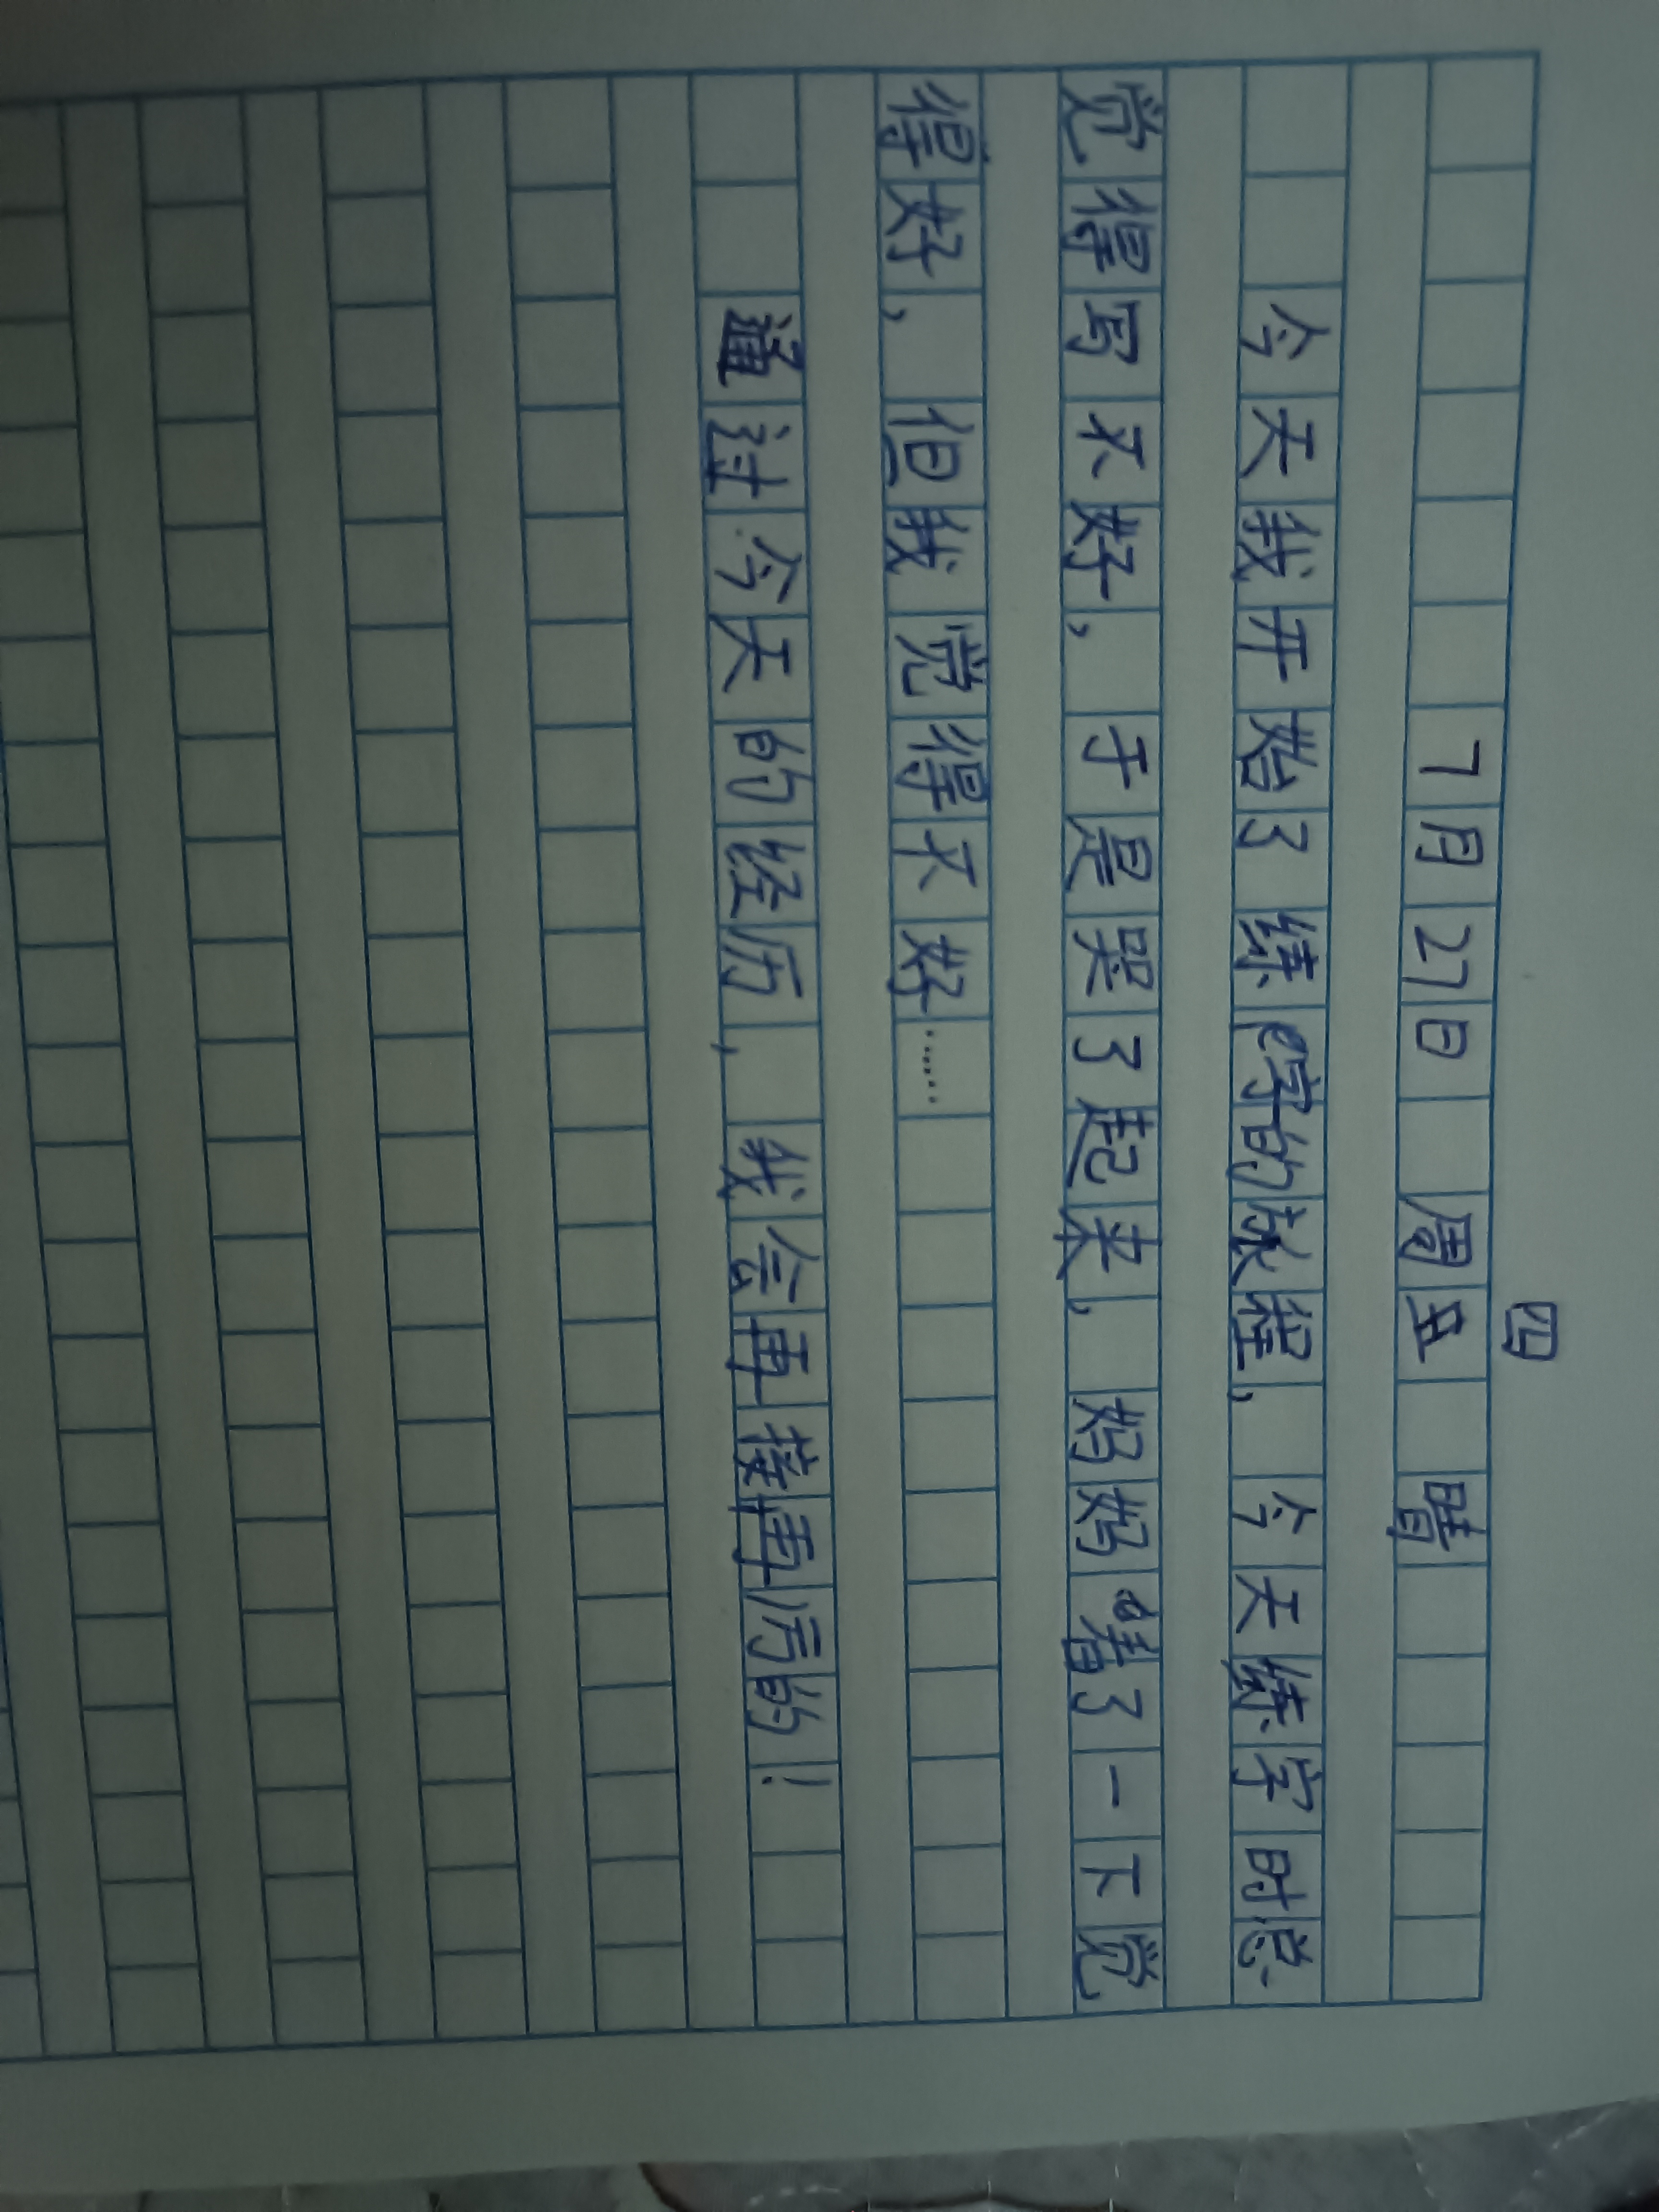 四
7月27日 周五 晴
今天我开始了练字的旅程，今天练字时总
觉得写不好，于是哭了起来，妈妈看了一下觉
得好，但我觉得不好……
通过今天的经历，我会再接再厉的！